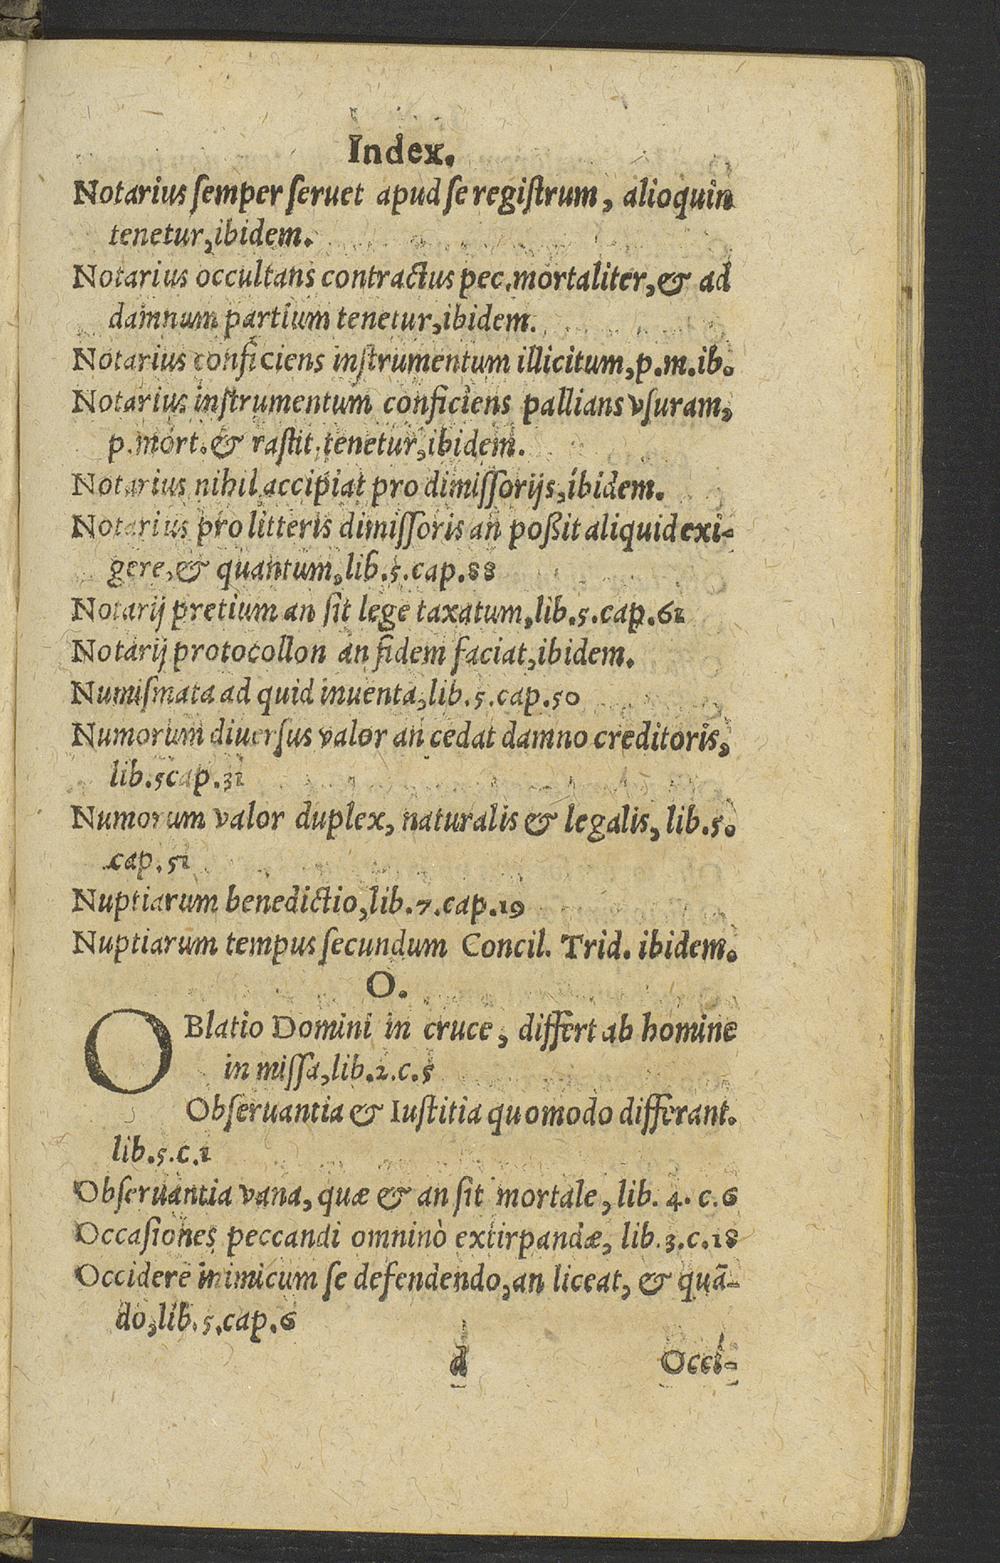 Index.
Notarius ſemper ſeruet apud ſe regiſtrum, alioquin
tenetur, ibidem.
Notarius occultans contractus pec. mortaliter, & ad
damnum partium tenetur, ibidem.
Notarius conficiens inſtrumentum illicitum, p. m. ib.
Notarius inſtrumentum conficiens pallians vſuram,
p. mort. & raſtit. tenetur, ibidem.
Notarius nihil accipiat pro dimiſſorijs, ibidem.
Notarius pro litteris dimiſſoris an poßit aliquid exi-
gere, & quantum, lib. 5. cap. 88
Notarij pretium an ſit lege taxatum, lib. 5. cap. 61
Notarij protocollon an fidem faciat, ibidem.
Numiſmata ad quid inuenta, lib. 5. cap. 50
Numorum diuerſus valor an cedat damno creditoris,
lib. 5 cap. 31
Numorum valor duplex, naturalis & legalis, lib. 5.
cap. 51
Nuptiarum benedictio, lib. 7. cap. 19
Nuptiarum tempus ſecundum Concil. Trid. ibidem.
O.
OBlatio Domini in cruce, differt ab homine
in miſſa, lib. 2. c. 5
Obſeruantia & Iuſtitia quomodo differant.
lib. 5. c. 1
Obſeruantia vana, quæ & an ſit mortale, lib. 4. c. 6
Occaſiones peccandi omninò extirpandæ, lib. 3. c. 18
Occidere inimicum ſe defendendo, an liceat, & quā-
do, lib. 5. cap. 6
d Occi-